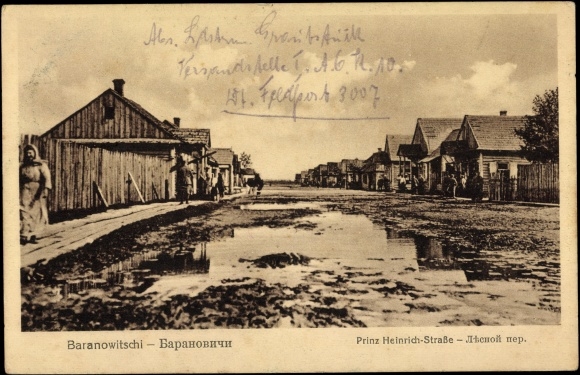 Abs. Lstrm.
Versandstelle I. A. G. K. 10.
Dt. Feldpost 3007
Baranowitschi – Барановичи
Prinz Heinrich-Straße – Лѣсной пер.